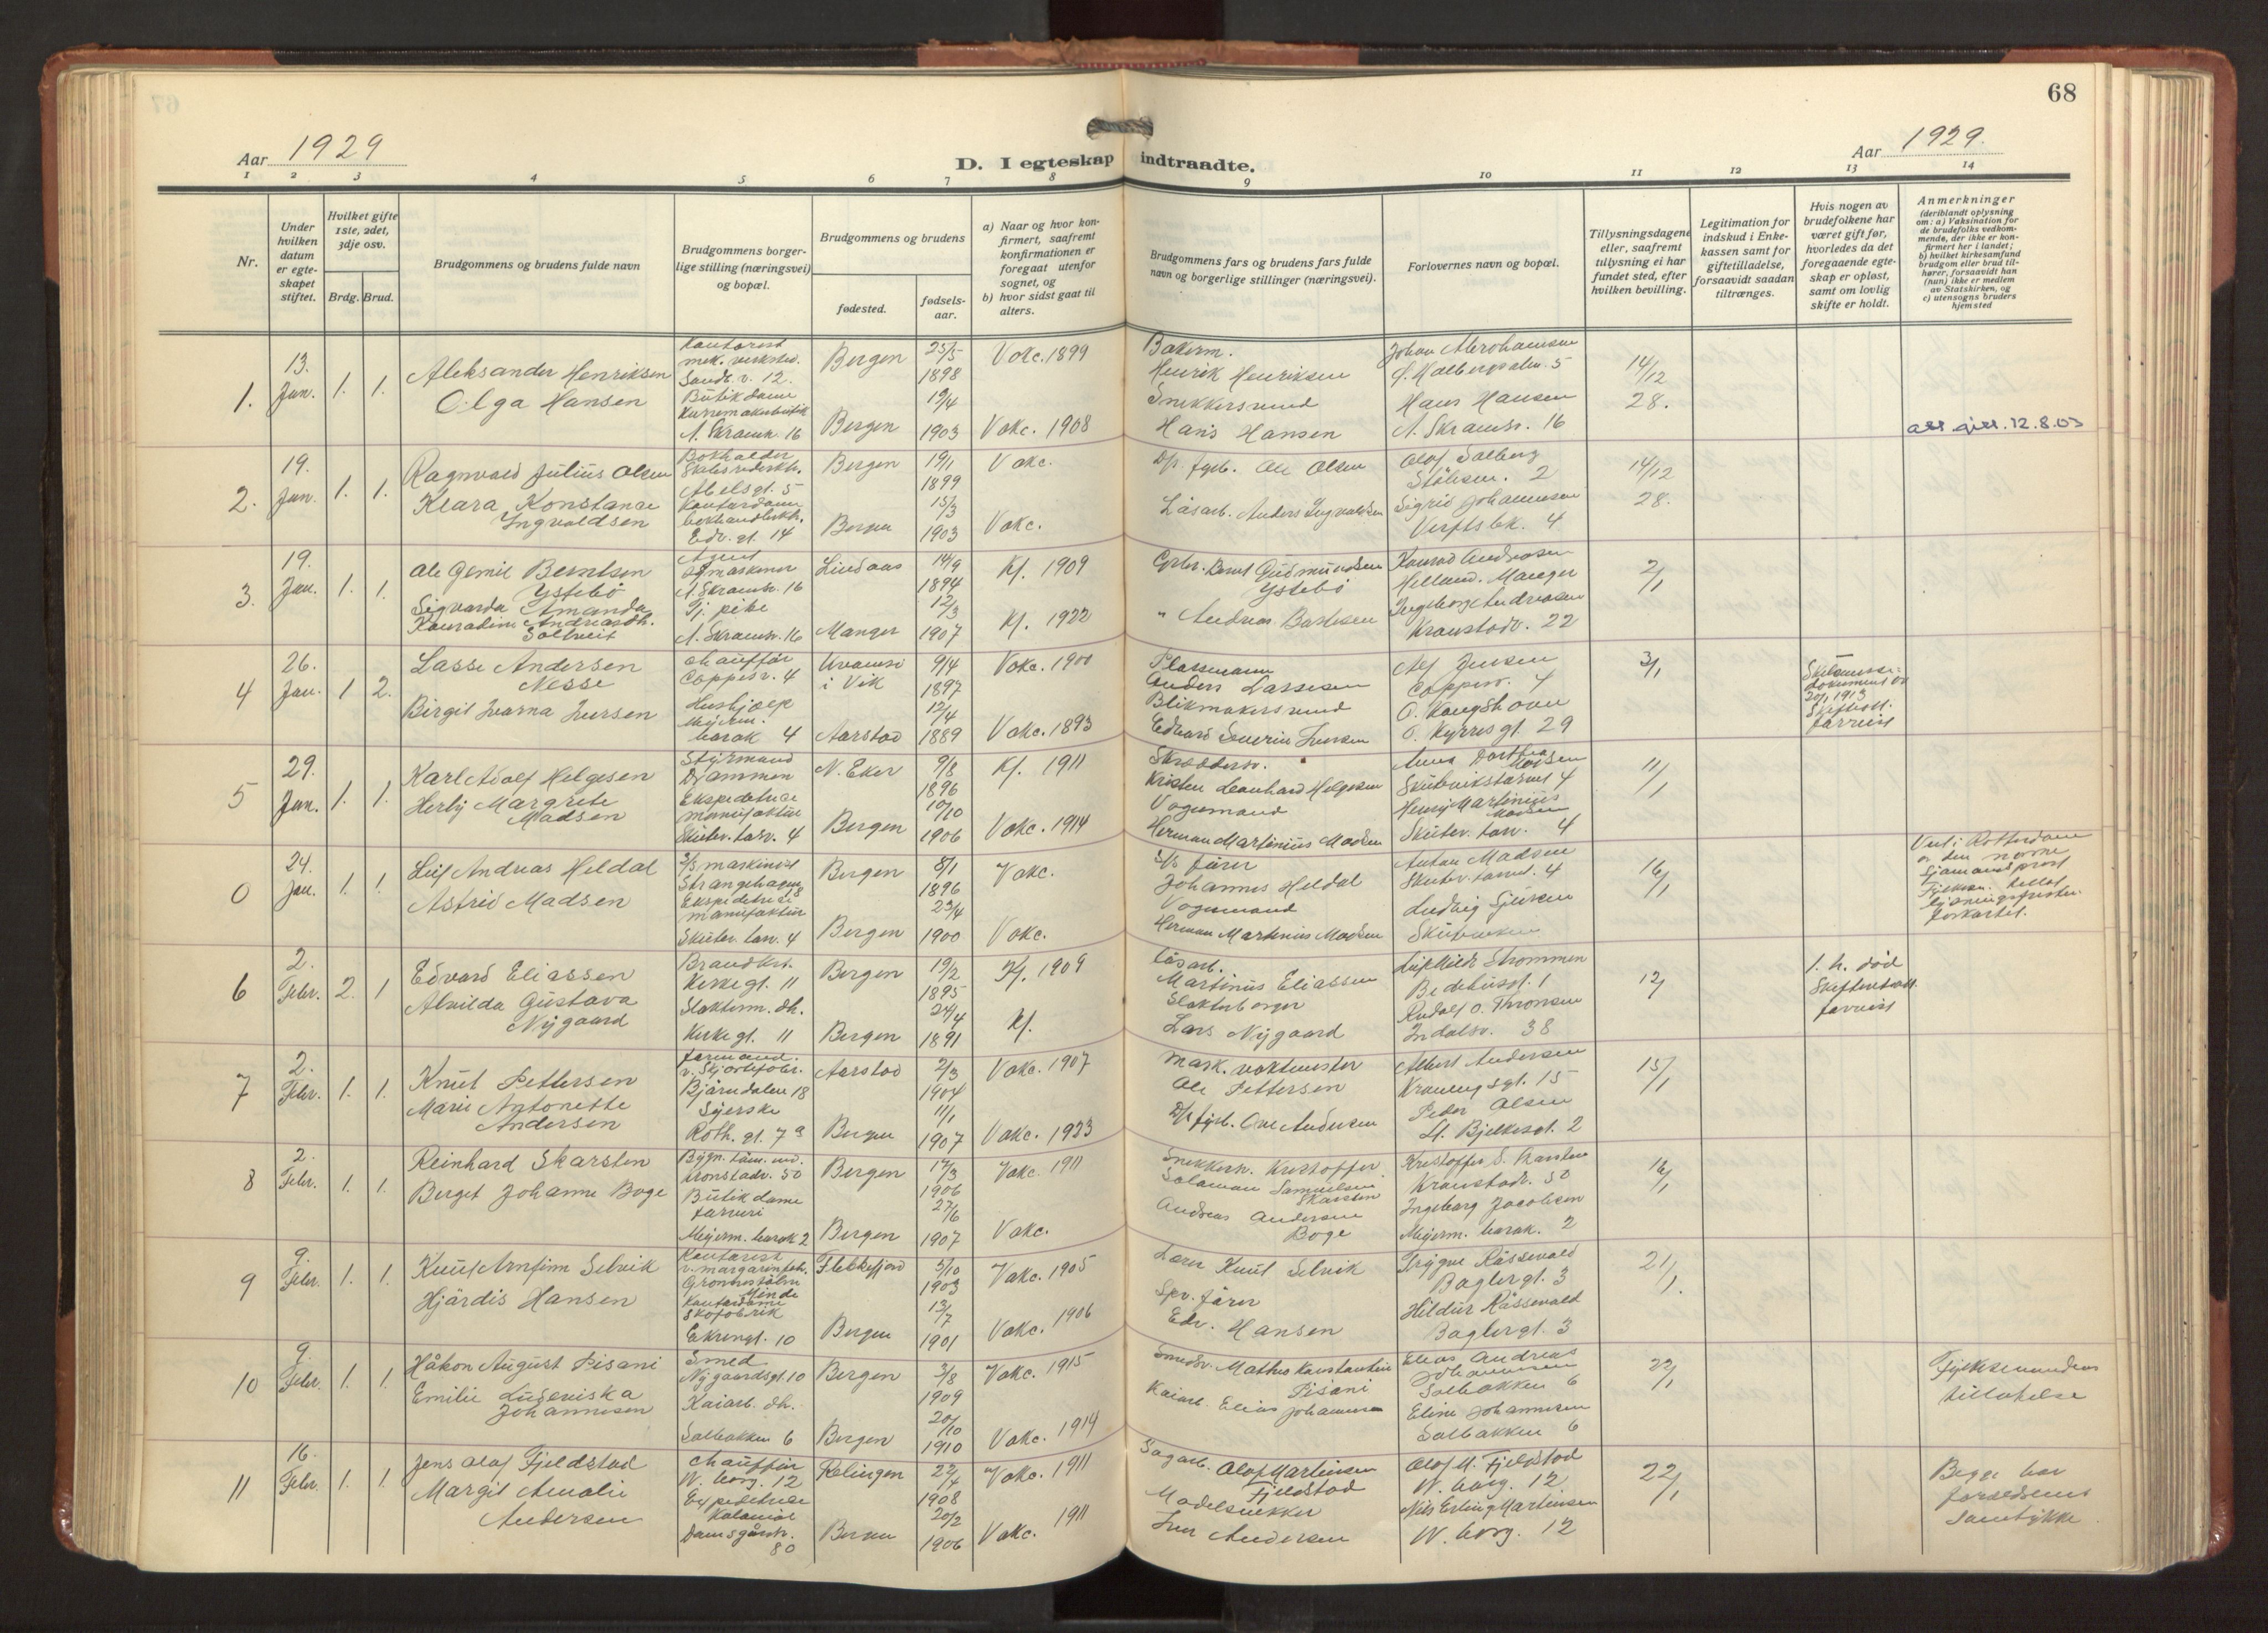 68
Aar 1929
D. I egteskap indtraadte.
Aar 1929.
1 2 3 4 5 6 7 8 9 10 11 12 13 14
Nr.
Under hvilken datum er egteskapet stiftet.
Hvilket gifte 1ste, 2det, 3dje osv.
Brdg. Brud.
Brudgommens og brudens fulde navn
Brudgommens borgerlige stilling (næringsvei) og bopæl.
Brudgommens og brudens
fødested.
fødselsaar.
a) Naar og hvor konfirmert, saafremt konfirmationen er foregaat utenfor sognet, og
b) hvor sidst gaat til alters.
Brudgommens fars og brudens fars fulde navn og borgerlige stillinger (næringsvei).
Forlovernes navn og bopæl.
Tillysningsdagene eller, saafremt tillysning ei har fundet sted, efter hvilken bevilling.
Legitimation for indskud i Enkekassen samt for giftetilladelse, forsaavidt saadan tiltrænges.
Hvis nogen av brudefolkene har været gift før, hvorledes da det foregaaende egteskap er opløst, samt om lovlig skifte er holdt.
Anmerkninger
(deriblandt oplysning om: a) Vaksination for de brudefolks vedkommende, der ikke er konfirmert her i landet;
b) hvilket kirkesamfund brudgom eller brud tilhører, forsaavidt han (hun) ikke er medlem av Statskirken, og
c) utensogns bruders hjemsted
1. 13. Jan. 1. 1.
Aleksander Henriksen
Olga Hansen
Kontorist
mek. verksted.
Sandv. v. 12.
Butikdame
N. Skramsv. 16
Bergen 25/5 1898 Vakc. 1899
Bergen 19/4 1903 Vakc. 1908
Bakerm.
Henrik Henriksen
Snekkersvend
Hans Hansen
Johan Abrahamsen
Hans Hansen
N. Skramsv. 16
14/12 28.
12.8.03
2. 19. Jan. 1. 1.
Ragnvald Julius Olsen
Klara Konstanse
Ingvaldsen
Bokholder
Abelsgt. 5
Kontordame
Edv. gt. 14
Bergen 19/1 1899 Vakc.
Bergen 13/3 1903 Vakc.
D/s fyrb. Ole Olsen
Låsarb. Anders Ingvaldsen
Olaf Solberg
Stølsen. 2
Sigrid Johannesen
Verftsbk. 4
14/12 28.
3. 19. Jan. 1. 1.
Ole Gemil Berntsen
Ystebö
Sigvarda Amanda
Konradine Andreasdh.
Soltveit
Agent
symaskiner
N. Skramsv. 16
Tj. pike
N. Skramsv. 16
Lindaas 14/9 1894 Kf. 1909
Manger 12/3 1907 Kf. 1922
Gbr. Bernt Gudmundsen
Ystebö
" Andreas Bastesen
Konrad Andreasen
Helland. Manger
Ingeborg Andreasen
Kronstadv. 22
2/1
4 26. Jan. 1 2.
Lasse Andersen
Nesse
Birgit Ivarna Iversen
Chauffør
Coppesv. 4
Hushjælp
Meyerm.
barak 4
i Vik 9/4 1897 Vakc. 1900
Aarstad 12/4 1889 Vakc. 1893
Plassmann
Anders Lassesen
Blikmakersvend
Edvard Severin Iversen
Alf Jensen
Coppesv. 4
O. Kyrres gt. 29
3/1
Skilsmisse-
dokument av
20/1 1913
forevist
5 29. Jan. 1. 1.
Karl Adolf Helgesen
Herly Margrete
Madsen
Styrmand
Drammen
Ekspeditrice
manufaktur
Skutev. torv. 4
N. Eker 9/8 1896 Kf. 1911
Bergen 10/10 1906 Vakc. 1914
Skrædder.
Kristen Leonhard Helgesen
Vognmand
Herman Martinius Madsen
Anna Dorthea
Madsen
Skutevikstorvet 4
Henry Martinius
Madsen
Skutev. torv. 4
11/1
0 24. Jan. 1. 1.
Leif Andreas Heldal
Astrid Madsen
D/s maskinist
Strangehagen
18
Ekspeditrice
manufaktur
Skutev. torv. 4
Bergen 8/1 1896 Vakc.
Bergen 23/4 1900 Vakc.
D/s fører
Johannes Heldal
Vognmand
Herman Martinius Madsen
Anton Madsen
Skutev. torvet. 4
Ludvig Sjursen
Skuteviken
16/1
Viet i Rotterdam
av den norske
sjømandsprest
6 2. Febr. 2. 1
Edvard Eliassen
Alvilda Gustava
Nygaard
Brandkst.
Kirkegt. 11
Slakterm. dh.
Kirkegt. 11
Bergen 19/2 1895 Kf. 1909
Bergen 24/4 1891 Kf.
Låsarb.
Martinus Eliassen
Slakterborger
Lars Nygaard
Leif Mildr Strømmen
Bedehusgt. 1
Rudolf O. Thronsen
Indalsv. 38
12/1
1. h. død
Skifteattest.
forevist
7 2. Febr. 1. 1.
Knut Pettersen
Marie Antonette
Andersen
Formand.
v. Skjortefabr.
Bjørndalen 18
Syerske
Roth. gt. 7a
Aarstad 2/3 1904 Vakc. 1907
Bergen 11/1 1907 Vakc. 1923
Mask. vaktmester
Ole Pettersen
D/s fyrb. Ove Andersen
Albert Andersen
Kroneng sgt. 15
Peder Olsen
St. Bjelkesgt. 2
15/1
8 2. Febr. 1. 1.
Reinhard Skarsten
Berget Johanne Boge
Bygn. tøm. sv.
Kronstadv. 50
Butikdame
Meyerm. barak 2
Bergen 17/3 1906 Vakc. 1911
Bergen 27/6 1907 Vakc.
Snekkerm. Kristoffer
Salomon Samuelsen
Skarsten
Andreas Andersen
Boge
Kristoffer S. Skarsten
Kronstadv. 50
Ingeborg Jacobsen
Meyerm. barak. 2
16/1
9 9. Febr. 1. 1.
Knut Arnfinn Selvik
Hjørdis Hansen
Kontorist
v. margarinfab.
Minde
Kontordame
Skofabrik
Ekrengt. 10
Flekkefjord 3/10 1903 Vakc. 1905
Bergen 13/7 1901 Vakc. 1906
Lærer Knut Selvik
Spv. fører
Edv. Hansen
Trygve Råssevold
Baglergt. 3
Hildur Råssevold
Baglergt. 3
21/1.
10 9. Febr. 1. 1.
Håkon August Pisani
Emilie Ludeviska
Johannesen
Smed
Nygaardsgt. 10
Kaiarb. dh.
Solbakken 6
Bergen 3/8 1909 Vakc. 1915
Bergen 20/10 1910 Vakc. 1914
Smedsv. Mathis Konstantin
Pisani
Kaiarb. Elias Johannesen
Elias Andreas
Johannesen
Solbakken 6
Eline Johannesen
Solbakken 6
23/1
Fylkesmandens
tillatelse
11 16. Febr. 1. 1.
Jens Olaf Fjeldstad
Margit Amalie
Andersen
Chauffør
W. borg. 12
Expeditrice
Kolonial
Damsgårdv.
80
Rælingen 22/4 1908 Vakc. 1911
Bergen 20/2 1906 Vakc. 1911
Sagarb. Olaf Martinsen
Fjeldstad
Modelsnekker
Iver Andersen
Olaf M. Fjeldstad
W. borg. 12
Nils Erling Martinsen
W. borg. 12
22/1
Begge har
forældrenes
samtykke.